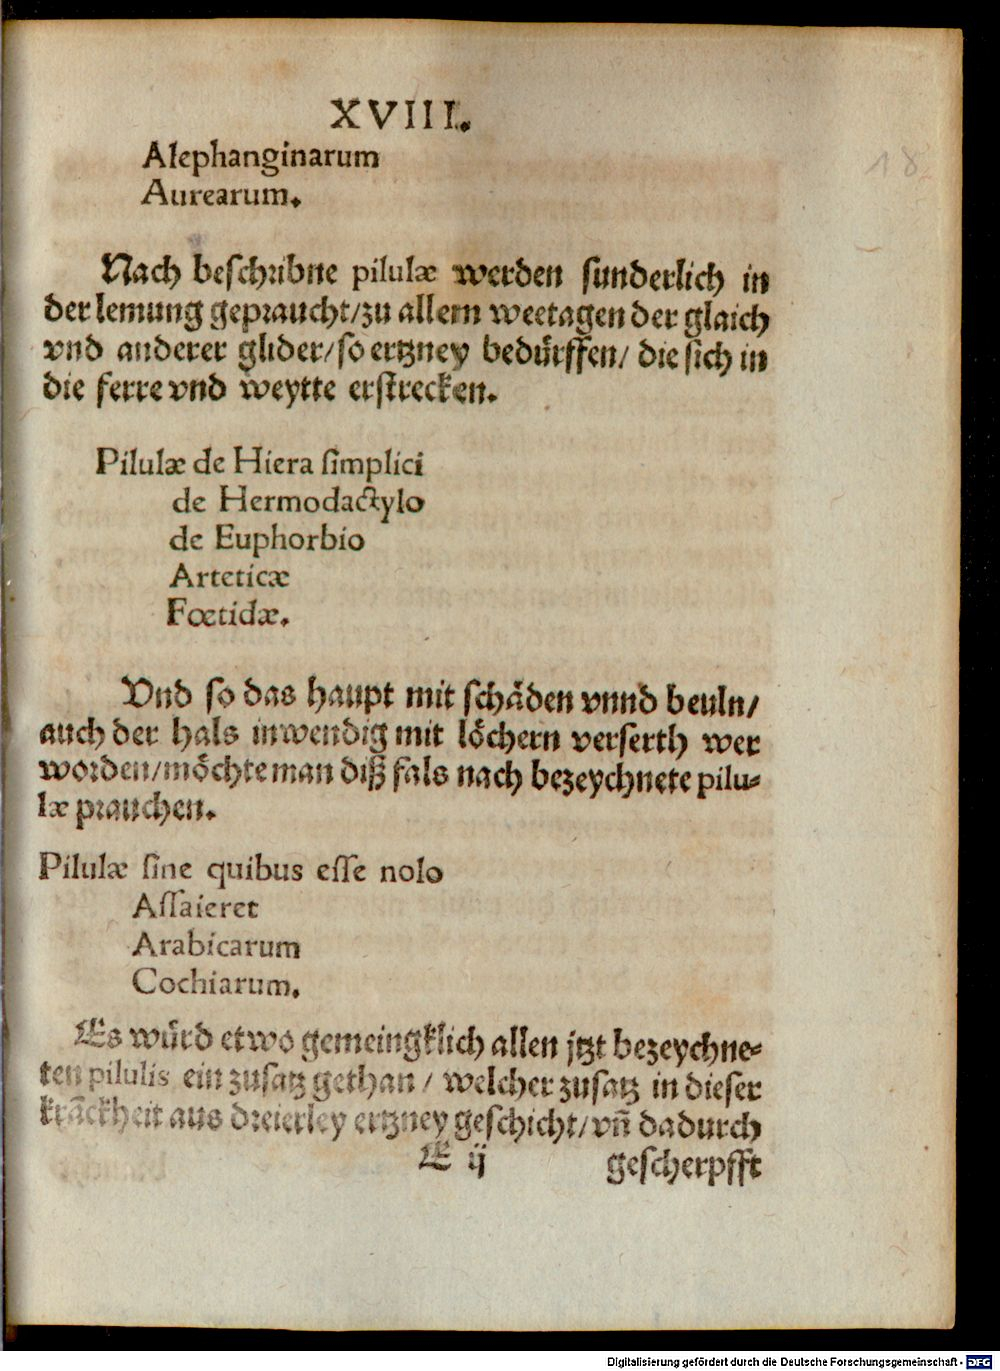 XVIII.
18
Alephanginarum
Aurearum.
Nach beschribne pilulæ werden sunderlich in
der lemung gepraucht/zu allem weetagen der glaich
vnd anderer glider/so ertzney bedürffen/ die sich in
die ferre vnd weytte erstrecken.
Pilulæ de Hiera simplici
de Hermodactylo
de Euphorbio
Arteticæ
Fœtidæ.
Vnd so das haupt mit schäden vnnd beuln/
auch der hals inwendig mit löchern verserth wer
worden/möchte man diß fals nach bezeychnete pilu-
læ prauchen.
Pilulæ sine quibus esse nolo
Assaieret
Arabicarum
Cochiarum.
Es würd etwo gemeingklich allen jtzt bezeychne-
ten pilulis ein zusatz gethan / welcher zusatz in dieser
krãckheit aus dreierley ertzney geschicht/vñ dadurch
E ij gescherpfft
Digitalisierung gefördert durch die Deutsche Forschungsgemeinschaft - DFG